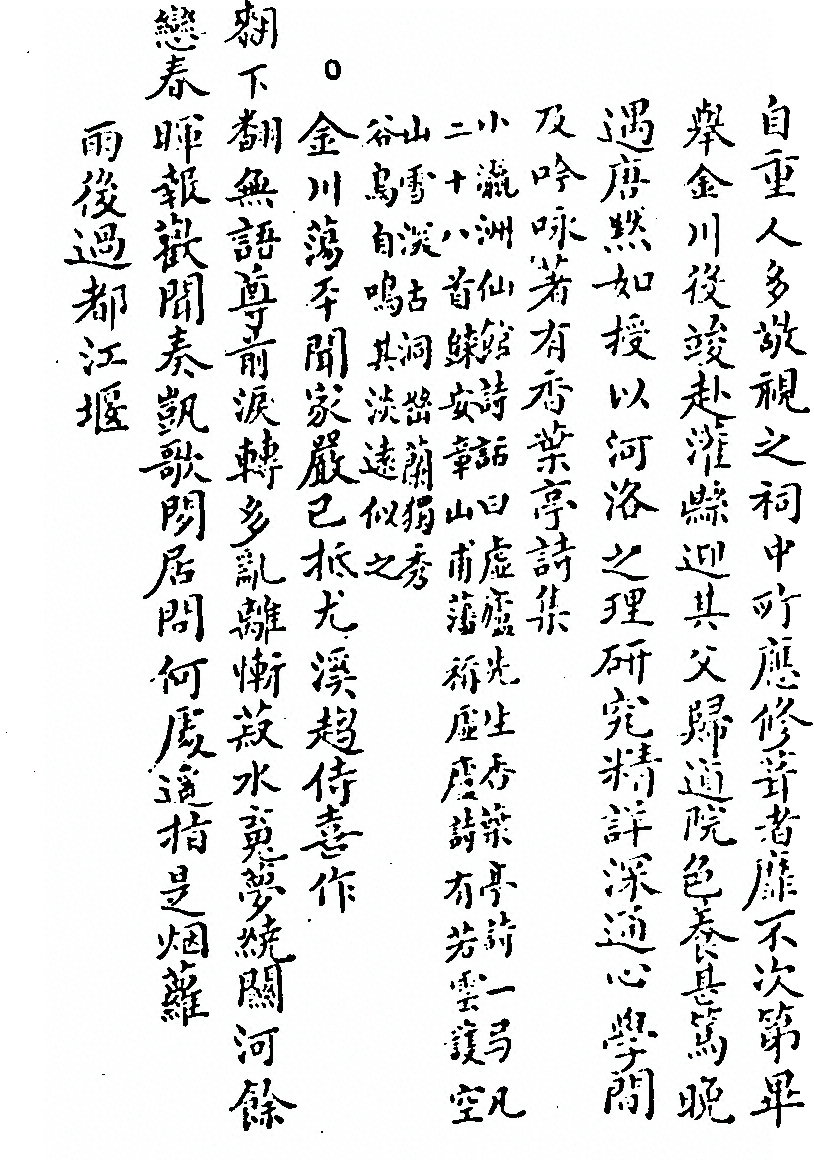 自重人多敬視之祠中所應修葺者靡不次第畢
舉金川後竣赴灌縣迎其父歸道院色養甚篤晚
遇唐然如授以河洛之理研究精詳深通心學間
及吟咏著有香葉亭詩集
小瀛洲仙館詩話曰虛庵先生香葉亭詩一弓凡
二十八首鰊安章山甫藩稱虛虛詩有若雲護空
山雪深古洞嵒蘭獨秀
谷鳥自鳴其淡遠似之
○金川蕩平聞家嚴已抵尤溪趨侍喜作
翻下翻無語尊前淚轉多亂離慚菽水寬夢繞關河餘
戀春暉報歡聞奏凱歌閒居問何處遥指是烟蘿
雨後過都江堰